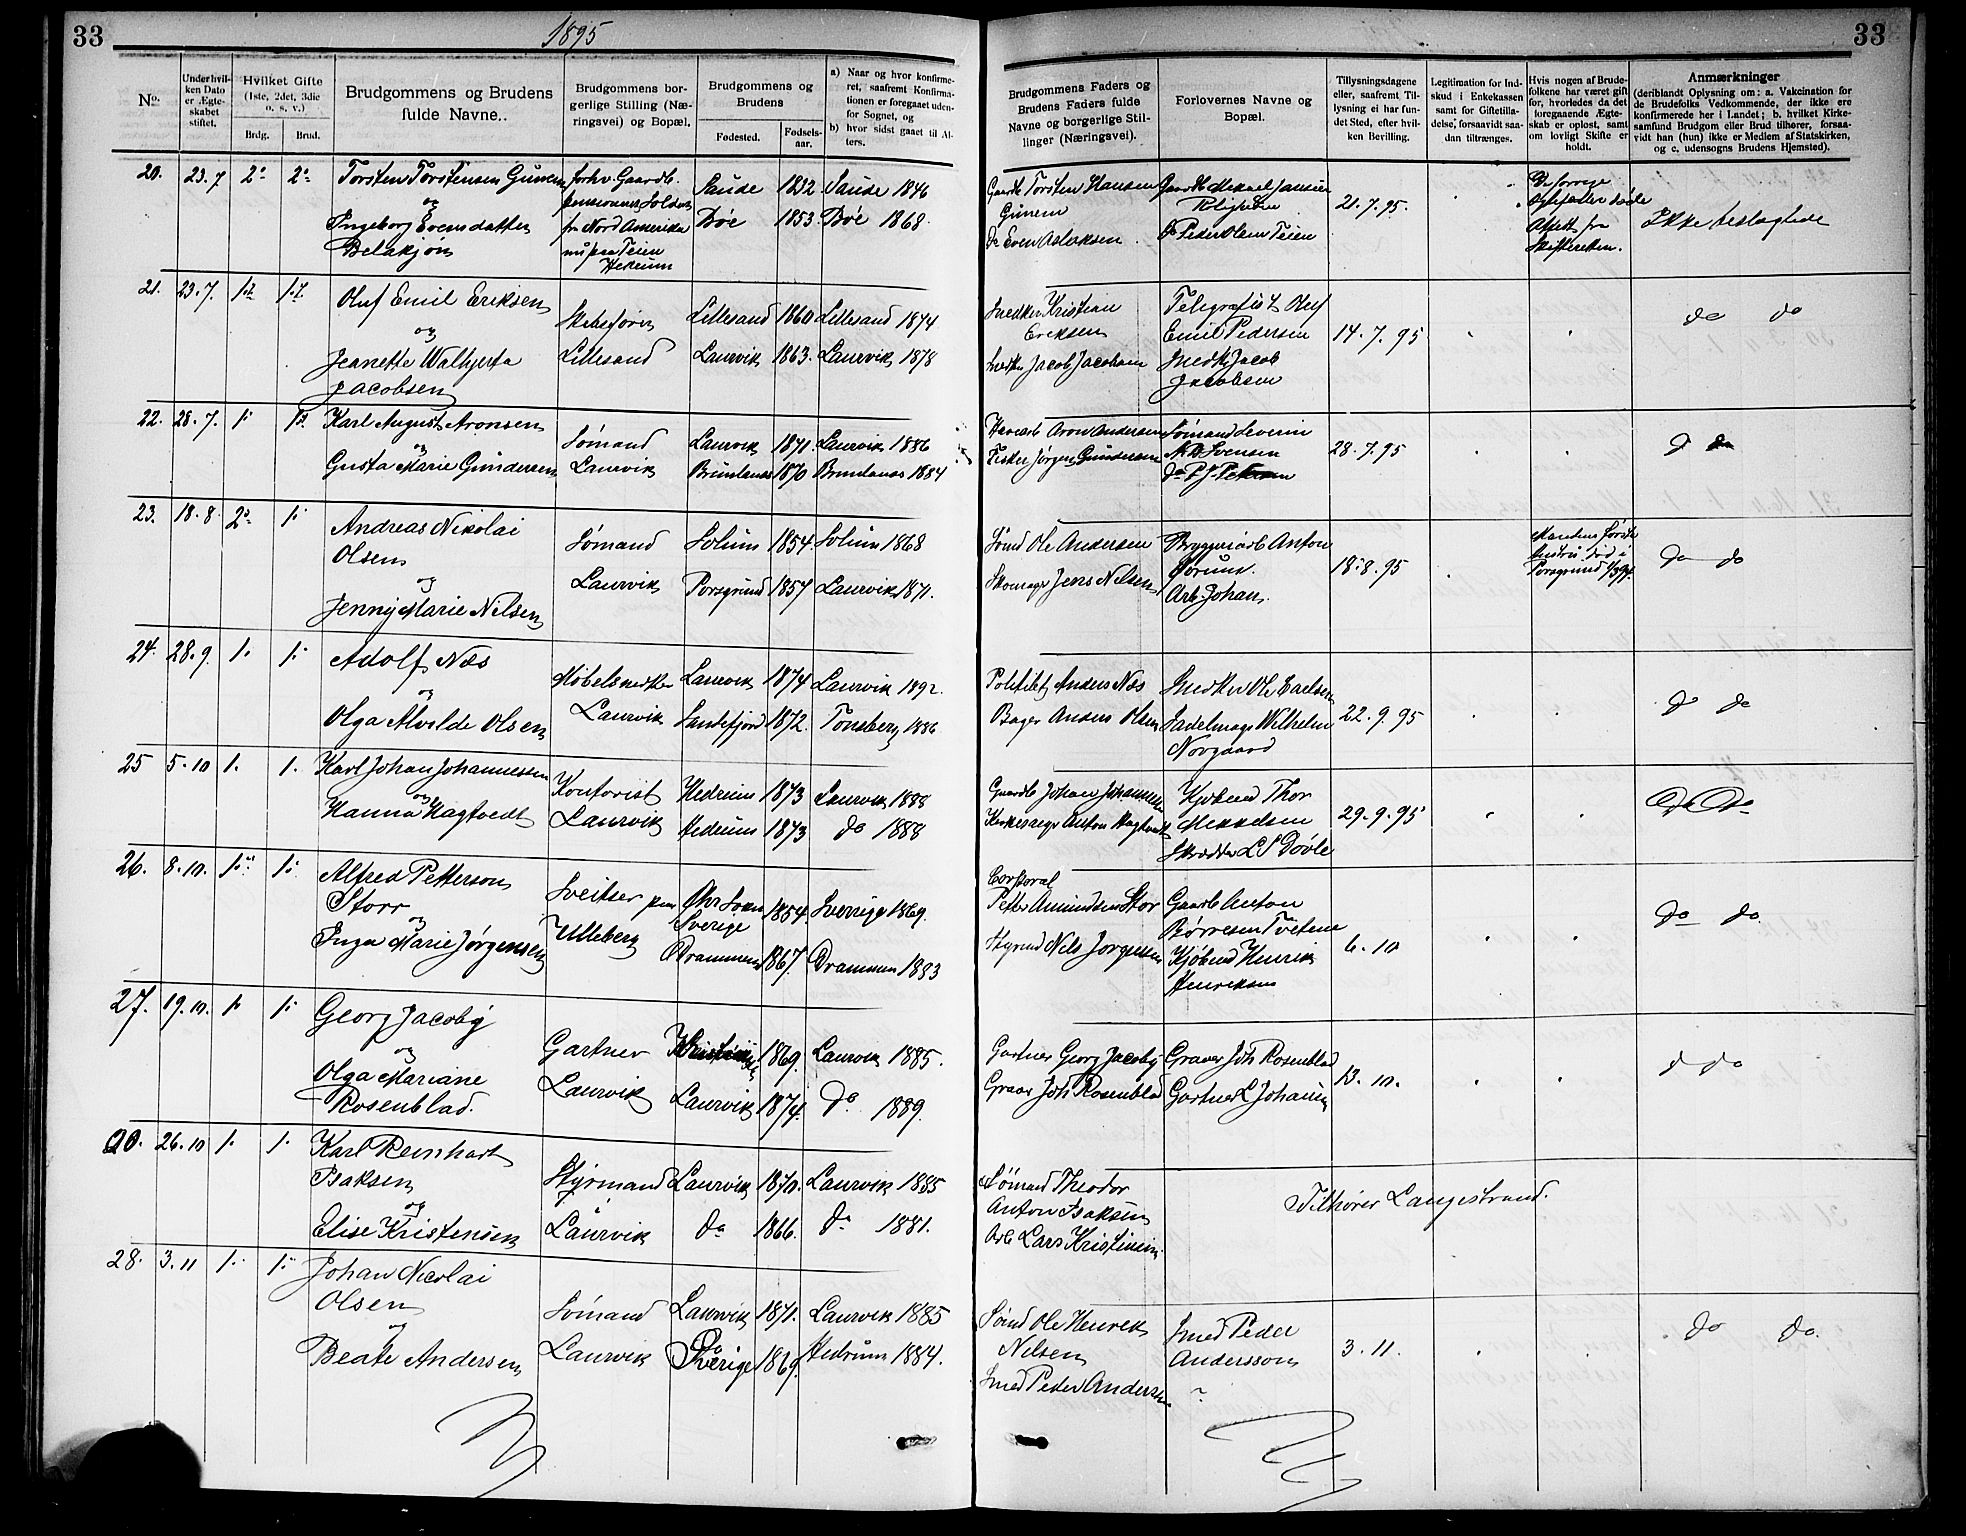 33
1895
33
No.
Under hvil-
ken Dato
er Ægte-
skabet
stiftet.
Hvilket Gifte
(1ste, 2det, 3die
o. s. v.)
Brdg.
Brud.
Brudgommens og Brudens
fulde Navne..
Brudgommens bor-
gerlige Stilling (Næ-
ringsvei) og Bopæl.
Brudgommens og
Brudens
Fødested.
Fødsels-
aar.
a) Naar og hvor konfirme-
ret, saafremt Konfirma-
tionen er foregaaet uden-
for Sognet, og
b) hvor sidst gaaet til Al-
ters.
Brudgommens Faders og
Brudens Faders fulde
Navne og borgerlige Stil-
linger (Næringsvei).
Forlovernes Navne og
Bopæl.
Tillysningsdagene
eller, saafremt Til-
lysning ei har fun-
det Sted, efter hvil-
ken Bevilling.
Legitimation for Ind-
skud i Enkekassen
samt for Giftetilla-
delse, forsaavidt saa-
dan tiltrænges.
Hvis nogen af Brude-
folkene har været gift
før, hvorledes da det
foregaaende Ægte-
skab er opløst, samt
om lovligt Skifte er
holdt.
Anmærkninger
(deriblandt Oplysning om: a. Vakcination for
de Brudefolks Vedkommende, der ikke ere
konfirmerede her i Landet; b. hvilket Kirke-
samfund Brudgom eller Brud tilhører, forsaa-
vidt han (hun) ikke er Medlem af Statskirken,
og c. udensogns Brudens Hjemsted).
20. 23.7 2 2 Torsten Torstensen Gunem
og
Ingeborg Evensdatter
Belakjøn
forhv. Gaardb.
pensioneret Soldat
fra Nord Amerika
nu paa Teien
Hedrum
Saude 1832 Saude 1846
Bøe 1853 Bøe 1868
Gaardb Torsten Hansen
Gunem
Do Even Aslaksen
Gaardb Mikael Jansen
Do Peder Olsen Teien
21.7.95.
De forrige
Ægtefæller døde
Attest fra
Skifteretten.
Ikke beslægtede
21. 23.7. 1st 1st. Oluf Emil Eriksen
og
Jeanette Walhjerta
Jacobsen
Skibsfører
Lillesand
Lillesand 1860 Lillesand 1874
Laurvik 1863. Laurvik 1878
Snedker Kristian
Eriksen
Snedker Jacob Jacobsen
Telegrafist Oluf
Emil Pedersen
Snedk Jacob
Jacobsen
14.7.95
do do
22. 28.7. 1 1st. Karl August Aronsen
og
Gusta Marie Gundersen
Sømand
Laurvik
Laurvik 1871. Laurvik 1886
Brunlanæs 1870 Brunlanæs 1884
Havarb Aron Andersen
Fisker Jørgen Gundersen
Sømand Severin
Svensen
Do P. J. Petersen
28.7.95
do do
23. 18.8 2 1. Andreas Nikolai
Olsen
og
Jenny Marie Nilsen
Sømand
Laurvik
Solum 1854. Solum 1868
Porsgrund 1857 Laurvik 1871.
Sømd Ole Andersen
Skomager Jens Nilsen
Bryggeriarb Anton
Sørum.
Arb. Johan.
18.8.95
Mandens første
Hustru død i
Porsgrund
do do
24. 28.9. 1. 1. Adolf Næs
og
Olga Alvilde Olsen
Møbelsnedker
Laurvik
Laurvik 1874 Laurvik 1892.
Sandefjord 1872. Tønsberg 1886
Politibtj Anders Næs
Bager Anders Olsen
Snedker Ole Carlsen
Sadelmager Wilhelm
Norgaard
22.9.95
do do
25 5.10 1. 1. Karl Johan Johannessen
og
Hanna Hagtvedt
Kontorist
Laurvik
Hedrum 1873 Laurvik 1888
Hedrum 1873 do 1888
Gaardb Johan Johannessen
Kirkesanger Anton Hagtvedt
Kjøbmd Thor
Mikkelsen
Skrædder L S Bøvle
29.9.95
Do Do
26. 8.10. 1. 1. Alfred Petterson
Storr
og
Inga Marie Jørgensen
Sveitser paa
Ulleberg
Sverige
1854. Sverrige 1869.
Drammen 1867. Drammen 1883
Corporal
Petter Amundsen Stor
Styrmd Nils Jørgensen
Gaardb Anton
Børresen Tvetene
Kjøbmd Henrik
Henriksen
6.10
Do do.
27. 19.10. 1. 1. Georg Jacoby
og
Olga Mariane
Rosenblad.
Gartner
Laurvik
Kristiania 1869. Laurvik 1885.
Laurvik 1874. do 1889.
Gartner Georg Jacoby
Graver Joh Rosenblad
Graver Joh Rosenblad
Gartner L Johansen
13.10.
do do
00. 26.10 1. 1. Karl Reinhart
Isaksen
og
Elise Kristensen
Styrmand
Laurvik
Laurvik 1870. Laurvik 1885
do 1866. do 1881.
Sømand Theodor
Anton Isaksen
Arb Lars Kristensen.
Tilhører Langestrand.
28. 3.11 1. 1. Johan Nicolai
Olsen
og
Beate Andersen
Sømand
Laurvik
Laurvik 1871. Laurvik 1885
Sverige 1869. Hedrum 1884.
Sømd Ole Henrik
Nilsen
Smed Peder Andersson
Smed Peder
Andersson
3.11.
do do.